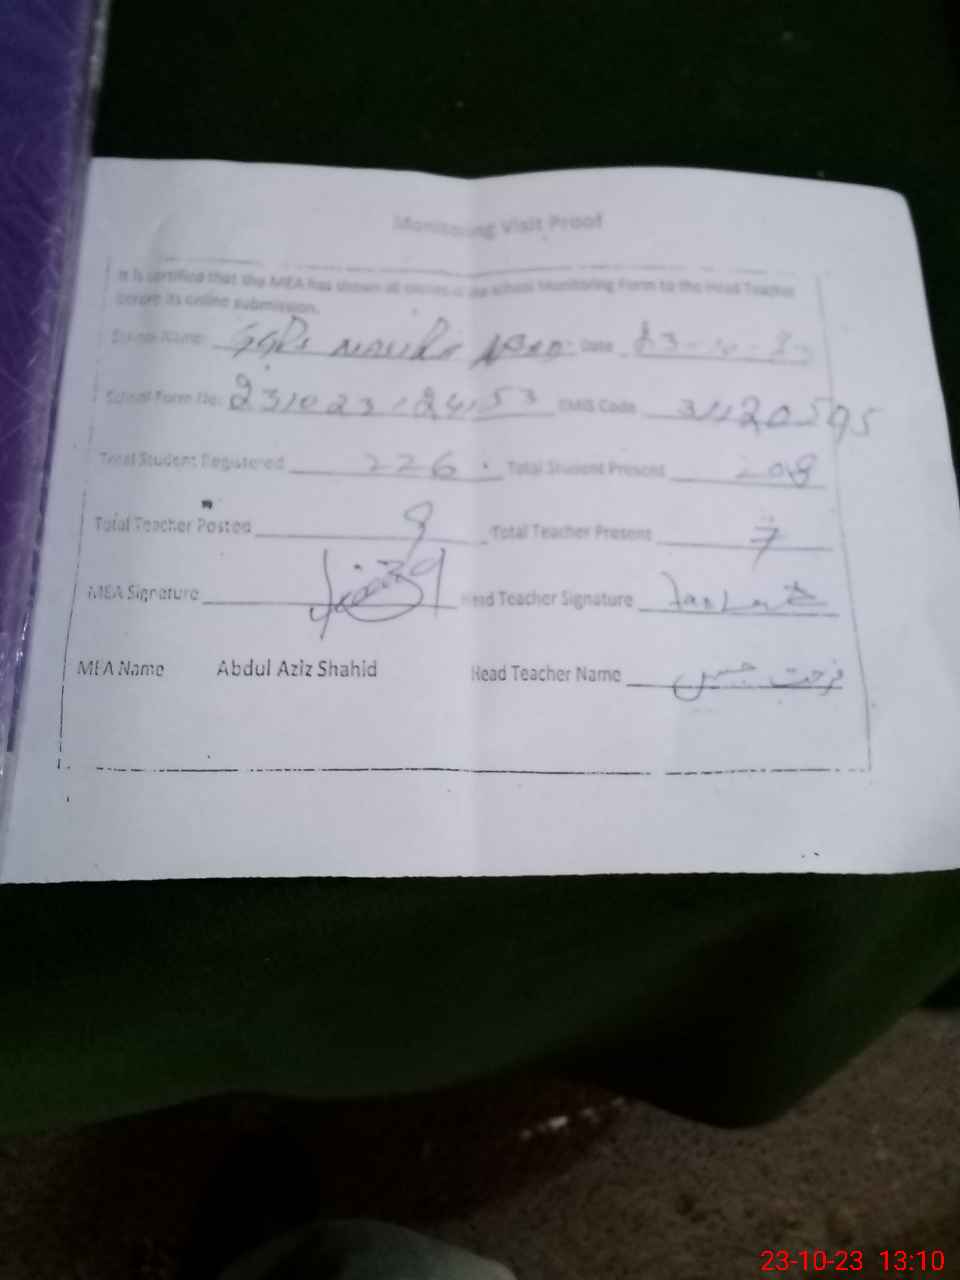 Monitoring Visit Proof
It is certified that the MEA has shown all the school Monitoring Form to the Head Teacher
before its online submission.
School Name: GGPS Date 23-10-23
School Form No: 231023 EMIS Code 31120595
Total Student Registered 226 Total Student Present 208
Total Teacher Posted 8 Total Teacher Present 7
MEA Signature Head Teacher Signature
MEA Name Abdul Aziz Shahid Head Teacher Name فرحت
23-10-23 13:10